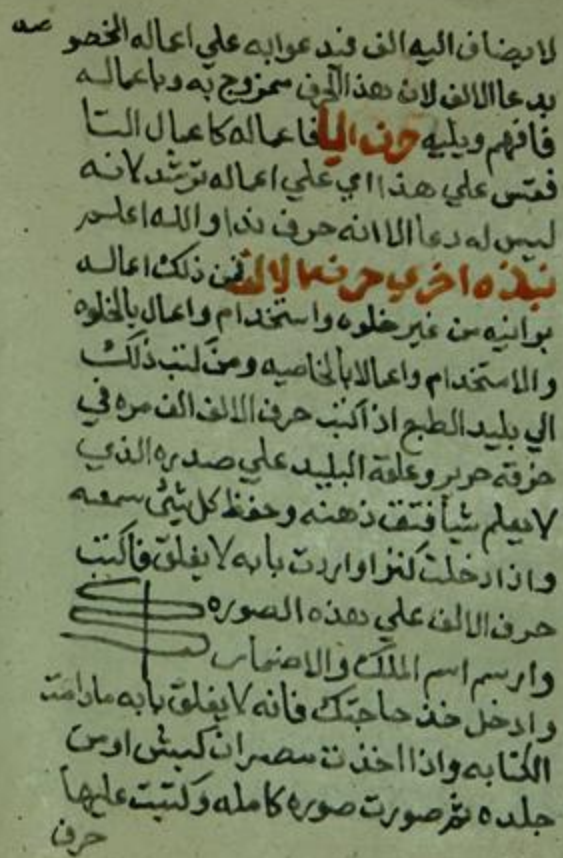 لا يضاف اليه الف فيدعوا به علي اعماله الخصو
بدعا الالف لان هذا الحرف ممزوج به وباعماله
فافهم ويليه حرف اليا فاعماله كاعمال التا
فقس علي هذا اي علي اعماله ترشد لانه
ليس له دعا الا انه حرف ندا والله اعلم
نبذه اخري حرف الالف فمن ذلك اعماله
برانيه من غير خلوه واستخدام واعمال بالخلوه
والاستخدام واعمالا بالخاصيه ومن ذلك
الي بليد الطبع اذا كتب حرف الالف الف مره في
خرقه حرير وعلقه البليد علي صدره الذي
لا يعلم شيأ فتق ذهنه وحفظ كل شئ سمعه
واذا دخلت كنزا واردت بابه لا يغلق فاكتب
حرف الالف علي هذه الصوره
وارسم اسم الملك والاضمار
وادخل خذ حاجتك فانه لا يغلق بابه مادامت
الكتابه واذا اخذت مصران كبش او من
جلده ثم صورت صوره كامله وكتبت عليها
حرف